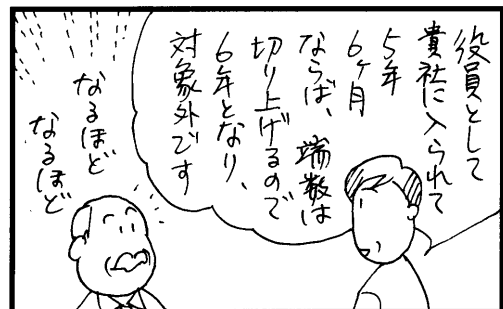 役員として
貴社に入られて
5年
6ヶ月
ならば、端数は
切り上げるので
6年となり、
対象外です
なるほど
なるほど